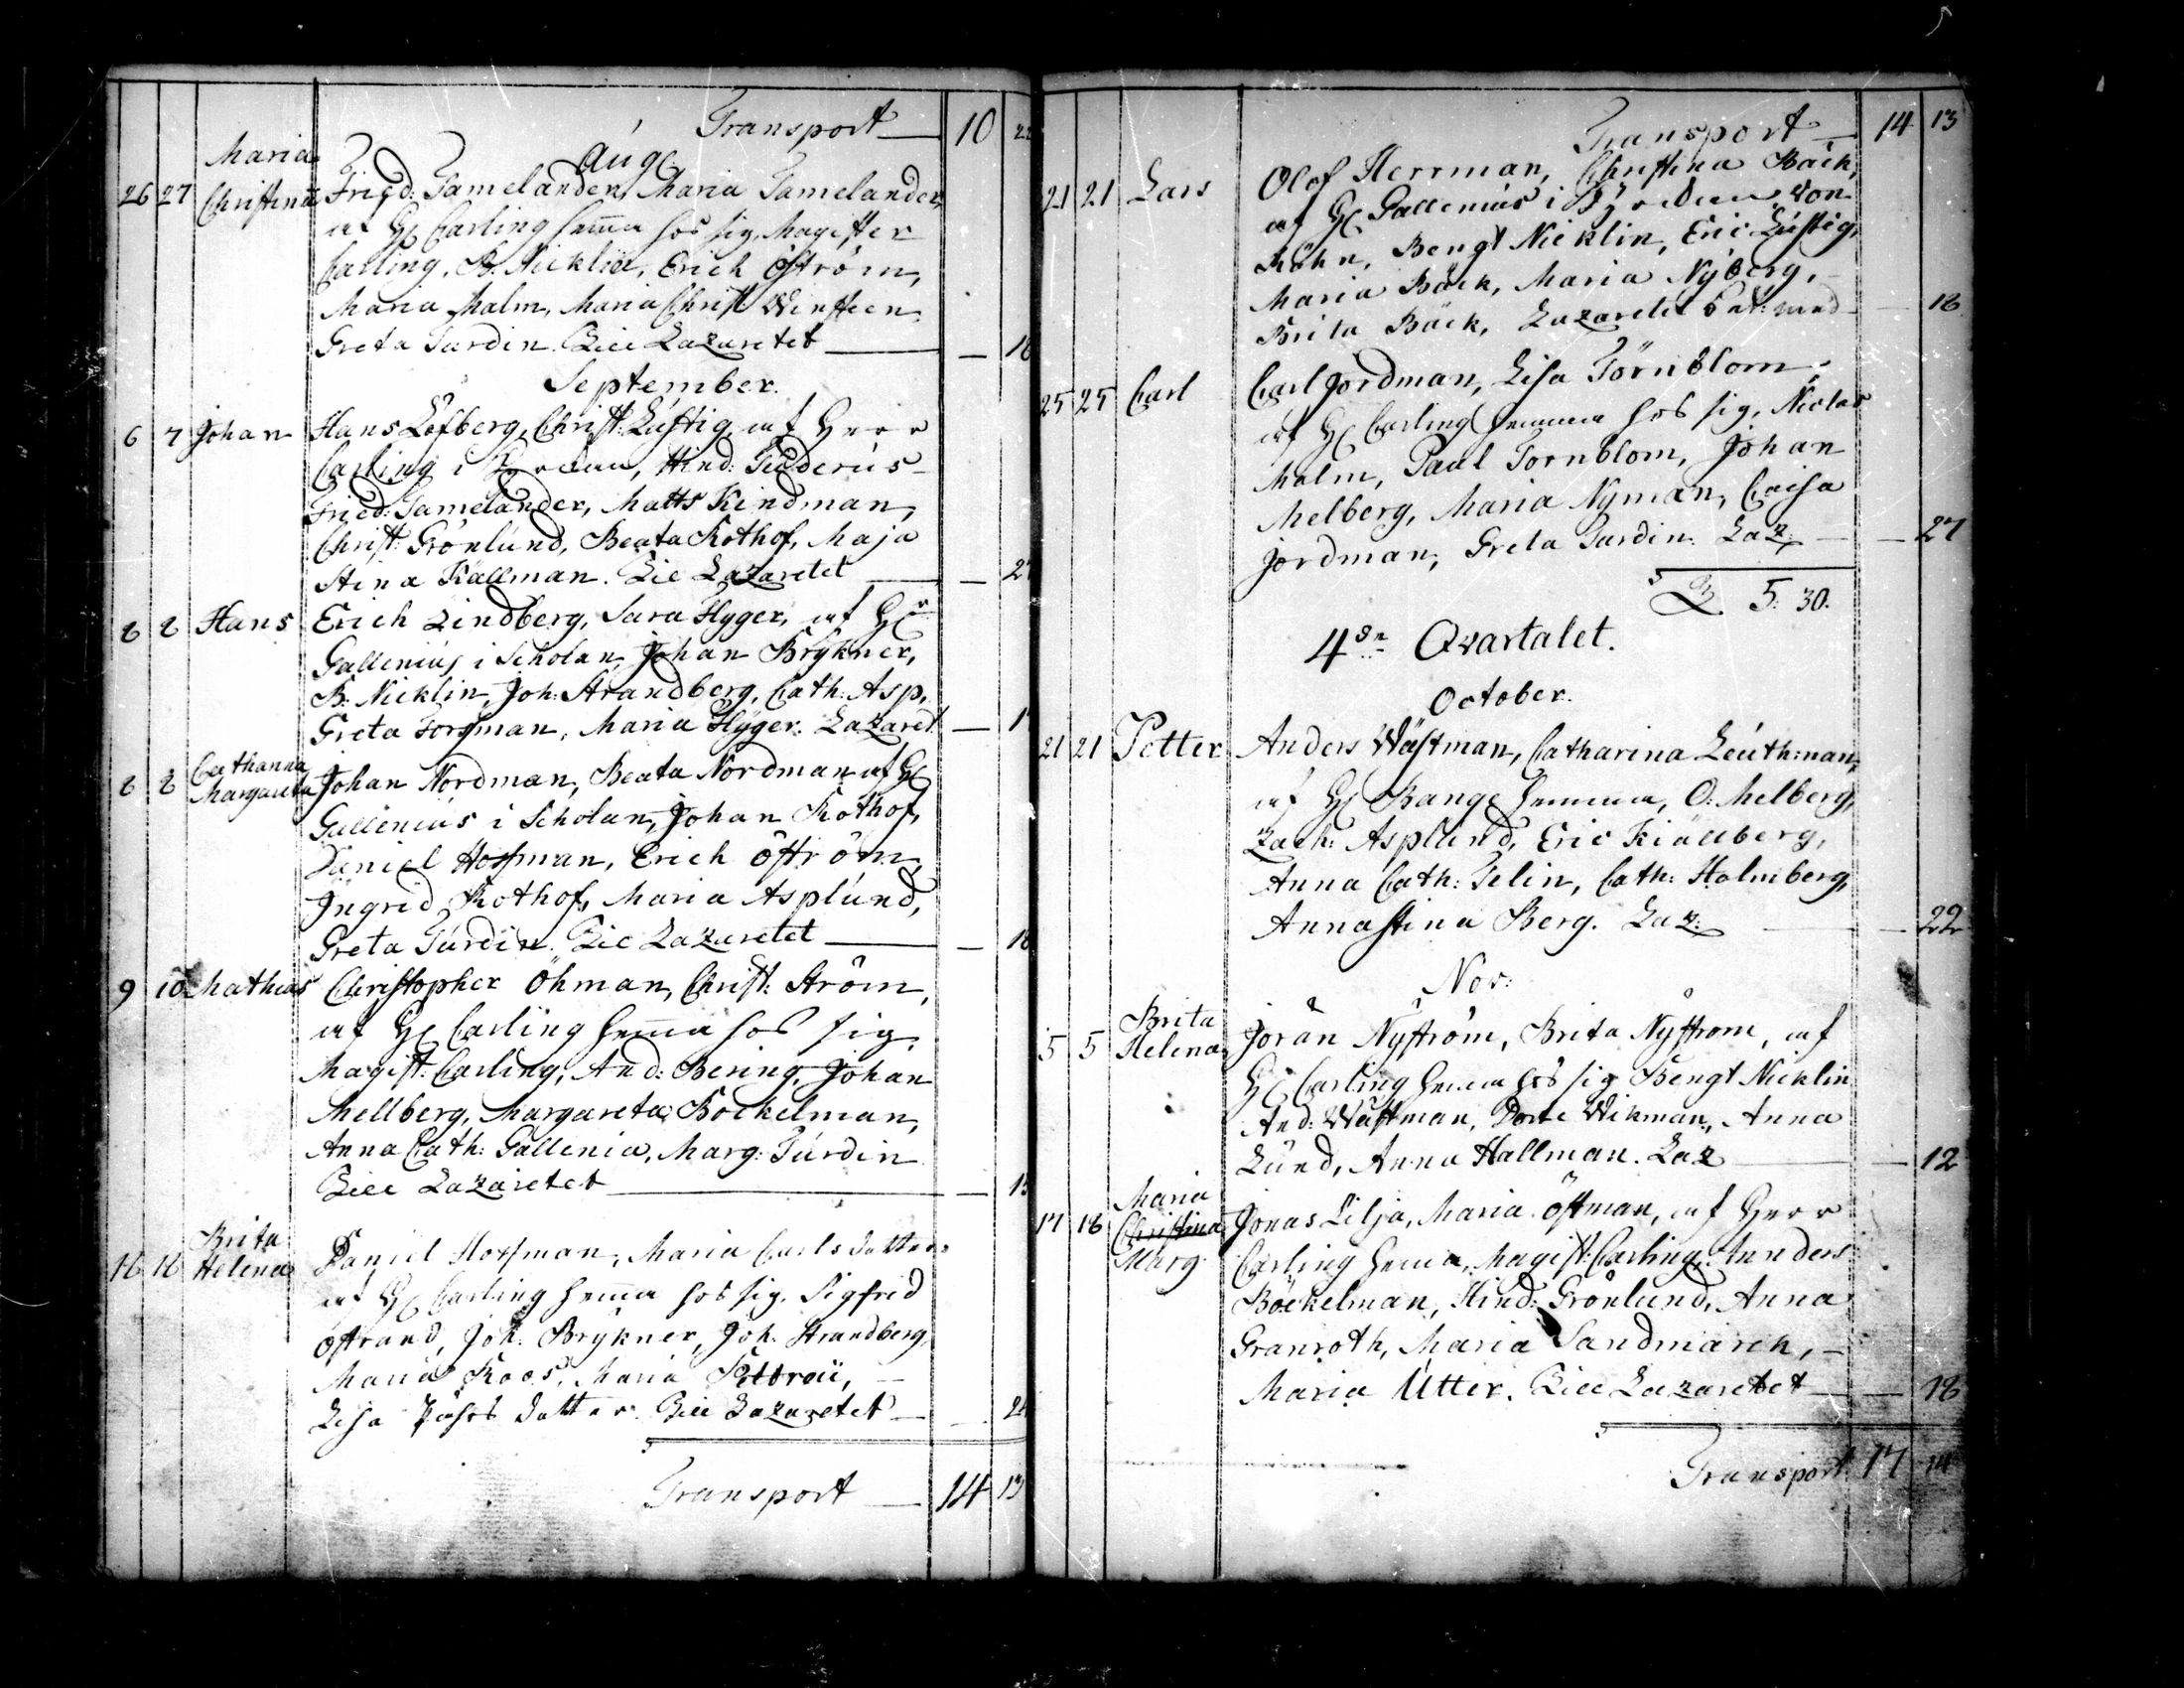 Transport — 10 22
Aug:
Maria
26 27 Christina Fried: Tamelander, Maria Tamelander,
af H: Carling hemma hos sig, Magister
Carling, B. Nicklin, Erich Öström,
Maria Malm, Maria Christ: Winsteen
Greta Turdin. Till Lazaretet — — 18
September.
6 7 Johan Hans Löfberg, Christ: Lustig, af Herr
Carling i Kyrckan, Hind: Tuderus
Fried: Tamelander, Matts Kindman,
Christ: Grönlund, Beata Rothof, Maja
Stina Källman. Till Lazaretet — — 27
8 8 Hans Erich Lindberg, Sara Flyger, af Hr
Gallenius i Scholan, Johan Brykner,
B: Nicklin, Joh: Strandberg, Cath: Asp,
Greta Forsman, Maria Flyger. Lazaret — 1
8 8 Catharina
Margareta Johan Nordman, Beata Nordman af H:
Gallenius i Scholan, Johan Rothof,
Daniel Hofman, Erich Öström,
Ingrid Rothof, Maria Asplund,
Greta Turdin. Till Lazaretet — — 18
9 10 Mathias Christopher Öhman, Christ: Ström,
af H: Carling hemma hos sig,
Magist: Carling, And: Bering, Johan
Mellberg, Margareta Bockelman,
Anna Cath: Gallenia, Marg: Turdin
Till Lazaretet — — 15
Brita
16 16 Helena Daniel Hofman, Maria Carlsdotter
af H: Carling hemma hos sig, Sigfrid
Östrand, Joh: Brykner, Joh: Strandberg,
Maria Roos, Maria
Lisa dotter. Till Lazaretet — — 24
Transport — 14 13
Transport — 14 13
21 21 Lars Olof Herrman, Christina Bäck,
af H: Gallenius i Kyrckan, von
Köhn, Bengt Nicklin, Eric Lustig,
Maria Bäck, Maria Nyberg, —
Brita Bäck, Lazaretet — 18
25 25 Carl Carl Jordman, Lisa Törnblom,
af H: Carling hemma hos sig, Niclas
Malm, Paul Tornblom, Johan
Melberg, Maria Nyman, Caisa
Jordman, Greta Turdin. Laz: — — 27
5: 30.
4de Qvartalet.
October.
21 21 Petter Anders Wästman, Catharina Leuthman,
af H: Bange hemma, O: Melberg,
Zach: Asplund, Eric Kiällberg,
Anna Cath: Telin, Cath: Holmberg,
Anna Stina Berg. Laz: — — 22
Nov:
Brita
5 5 Helena Jöran Nyström, Brita Nyström, af
H: Carling hemma hos sig Bengt Nicklin
And: Wästman, Wikman, Anna
Lund, Anna Hallman. Laz — — 12
Maria
17 18 Christina Jonas Lilja, Maria Östman, af Herr
Marg: Carling hemma, Magist: Carling, Annders
Böckelman, Hind: Grönlund, Anna
Granroth, Maria Sandmarck, —
Maria Utter. Till Lazaretet — — 18
Transport 17 14